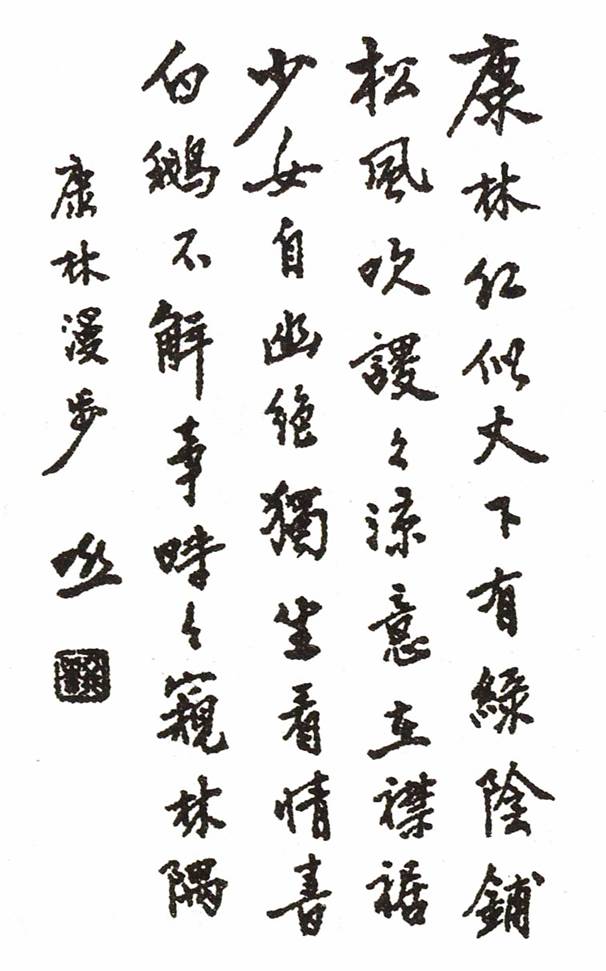 康林红似火下有綠陰鋪
松風吹謖々涼意在襟裾
少女自幽绝獨坐看情書
白鵝不解事時々窺林隅
康林漫步